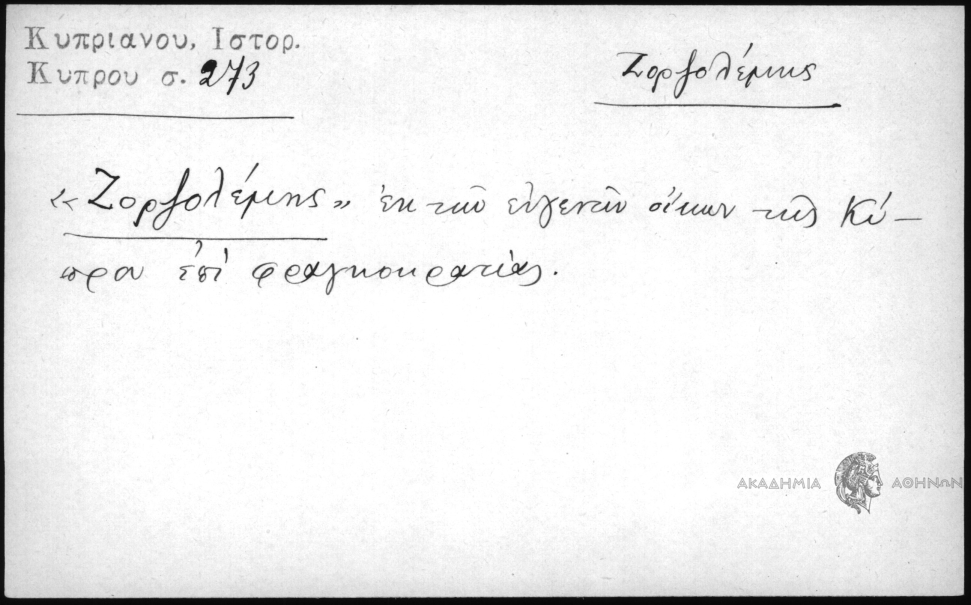 Κυπριανου, Ιστορ.
Κυπρου σ. 273
Ζορζολέμης
«Ζορζολέμης» ἐκ τῶν εὐγενῶν οἴκων τῆς Κύ-
πρου ἐπί φραγκοκρατίας.
ΑΚΑΔΗΜΙΑ ΑΘΗΝΩΝ